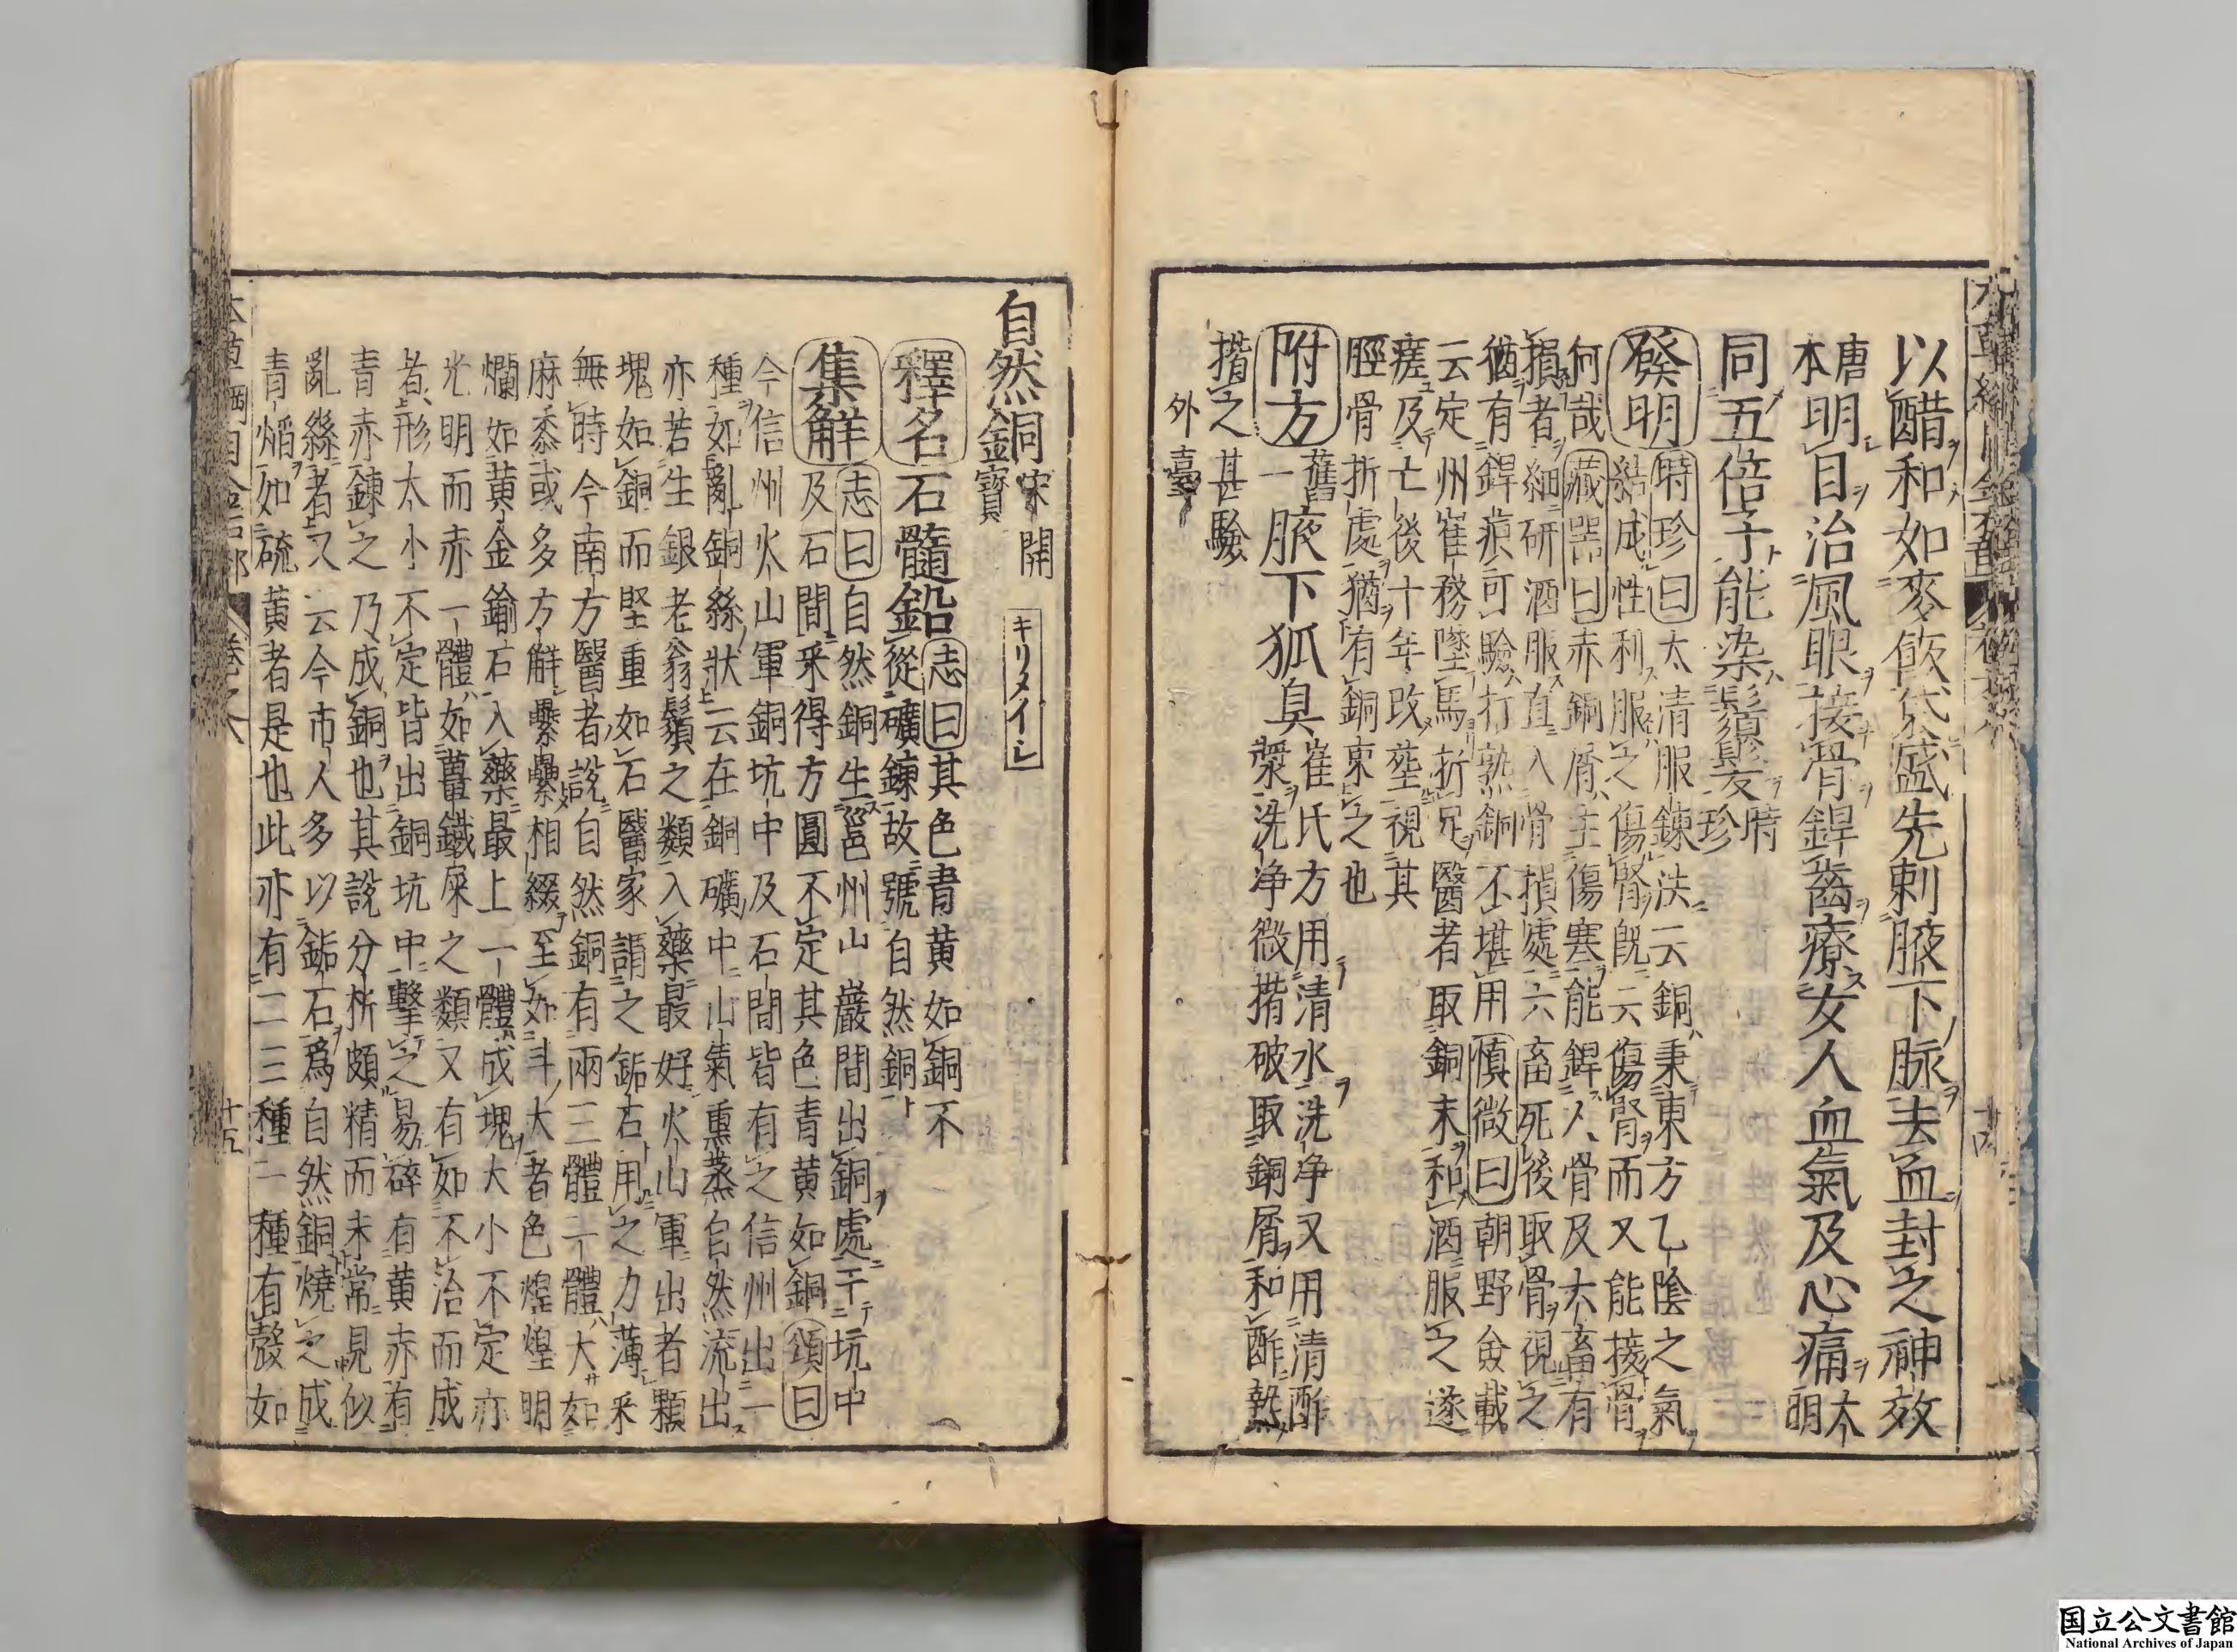 以醋和如麥飯袋盛先刺腋下脉去血封之神效
唐本明目治風眼接骨銲齒療女人血氣及心痛太明
同五倍子能染鬚髮時珍
發明時珍曰太清服鍊法云銅秉東方乙陰之氣
結成性利服之傷腎既云傷腎而又能接骨
何哉藏器曰赤銅屑主傷寒能銲人骨及六畜有
損者細研酒服直入骨損處六畜死後取骨視之
猶有銲痕可驗打熟銅不堪用慎微曰朝野僉載
云定州崔務墜馬折足醫者取銅末和酒服之遂
瘥及亡後十年改葬視其
脛骨折處猶有銅束之也
附方舊一腋下狐臭崔氏方用清水洗净又用清酢
漿洗净微揩破取銅屑和酢熱
揩之甚驗
外臺
自然銅宋開寳
キリメイシ
釋名石髓鉛志曰其色青黄如銅不
從礦鍊故號自然銅
集解志曰自然銅生邕州山巖間出銅處于坑中
及石間采得方圓不定其色青黄如銅頌曰
今信州火山軍銅坑中及石間皆有之信州出一
種如亂銅絲狀云在銅礦中山氣熏蒸自然流出
亦若生銀老翁鬚之類入藥最好火山軍出者顆
塊如銅而堅重如石醫家謂之鉐石用之力薄采
無時今南方醫者說自然銅有兩三體一體大如
麻黍或多方解纍纍相綴至如斗大者色煌煌明
爛如黄金鍮石入藥最上一體成塊大小不定亦
光明而赤一體如薑鐵屎之類又有如不冶而成
者形大小不定皆出銅坑中擊之易碎有黄赤有
青赤鍊之乃成銅也其說分析頗精而未常見似
亂絲者又云今市人多以鉐石爲自然銅燒之成
青焰如硫黄者是也此亦有二三種一種有殼如
本草綱目金石部 卷之八 十五